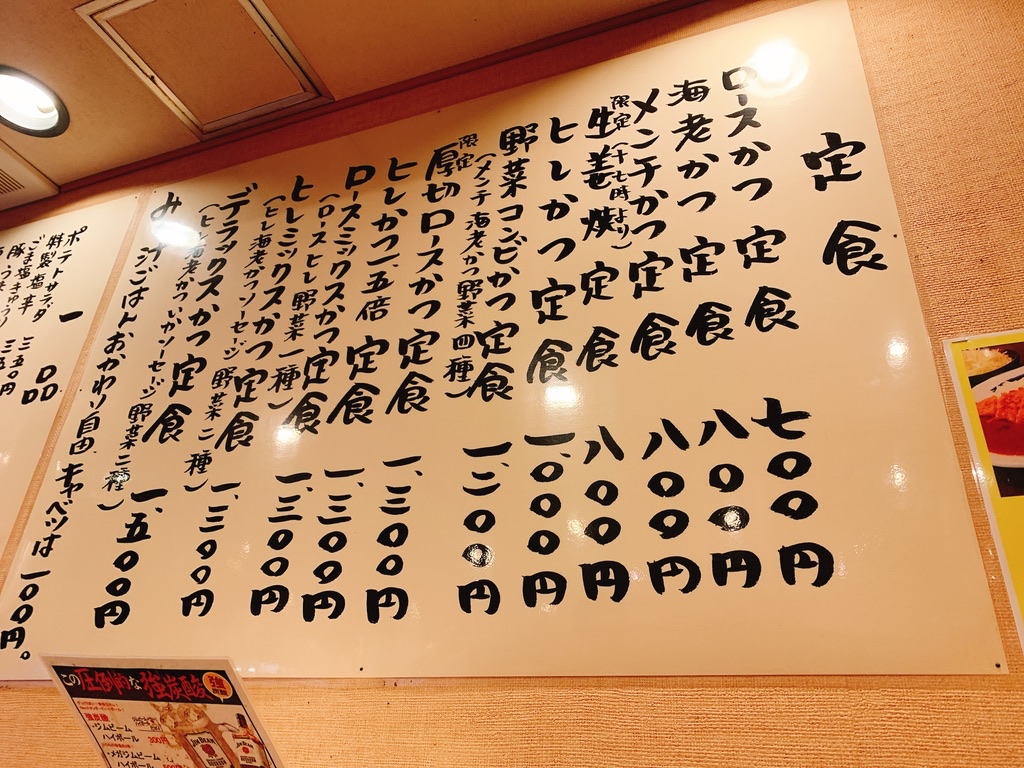 定食
ロースかつ定食 七〇〇円
海老かつ定食 八〇〇円
メンチかつ定食 八〇〇円
限定(十七時より)
生姜焼定食 八〇〇円
ヒレかつ定食 一、〇〇〇円
野菜コンビかつ定食 一、二〇〇円
(メンチ 海老かつ 野菜四種)
限定
厚切ロースかつ定食 一、三〇〇円
ヒレかつ一、五倍定食 一、三〇〇円
ロースミックスかつ定食 一、三〇〇円
(ロース ヒレ 野菜一種)
ヒレミックスかつ定食 一、三〇〇円
(ヒレ 海老かつ ソーセージ 野菜二種)
デラックスかつ定食 一、五〇〇円
(ヒレ 海老かつ いか ソーセージ 野菜二種)
ごはんおかわり自由 キャベツは一〇〇円。
一品
ポテトサラダ
特製塩辛 三五〇円
この圧倒的な強炭酸
強炭酸
・ジムビーム
ハイボール 300円
・メガジムビーム
ハイボール
JIM BEAM